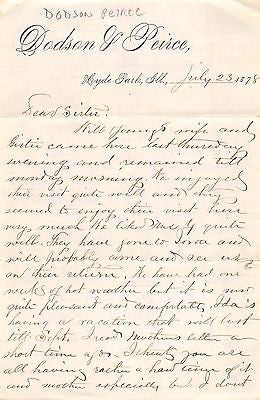 DODSON PEIRCE
Dodson & Peirce,
Hyde Park, Ill., July 23 1878
Dear Sister.
Will Young's wife and
Sister came here last Thursday
evening and remained till
monday morning. We enjoyed
their visit quite well and they
seemed to enjoy their visit here
very much. We liked Mary quite
well. They have gone to Iowa and
will probably come and see us
on their return. We have had one
week of hot weather but it is now
quite pleasant and comfortable. Ida is
having a vacation that will last
till Sept. I read mothers letter a
short time ago. I think you are
all having rather a hard time of it
and mother especially but I dont